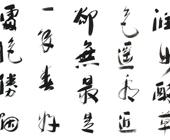 潤如酥草
色遥看近
卻無最是
一年春好
處絕勝烟